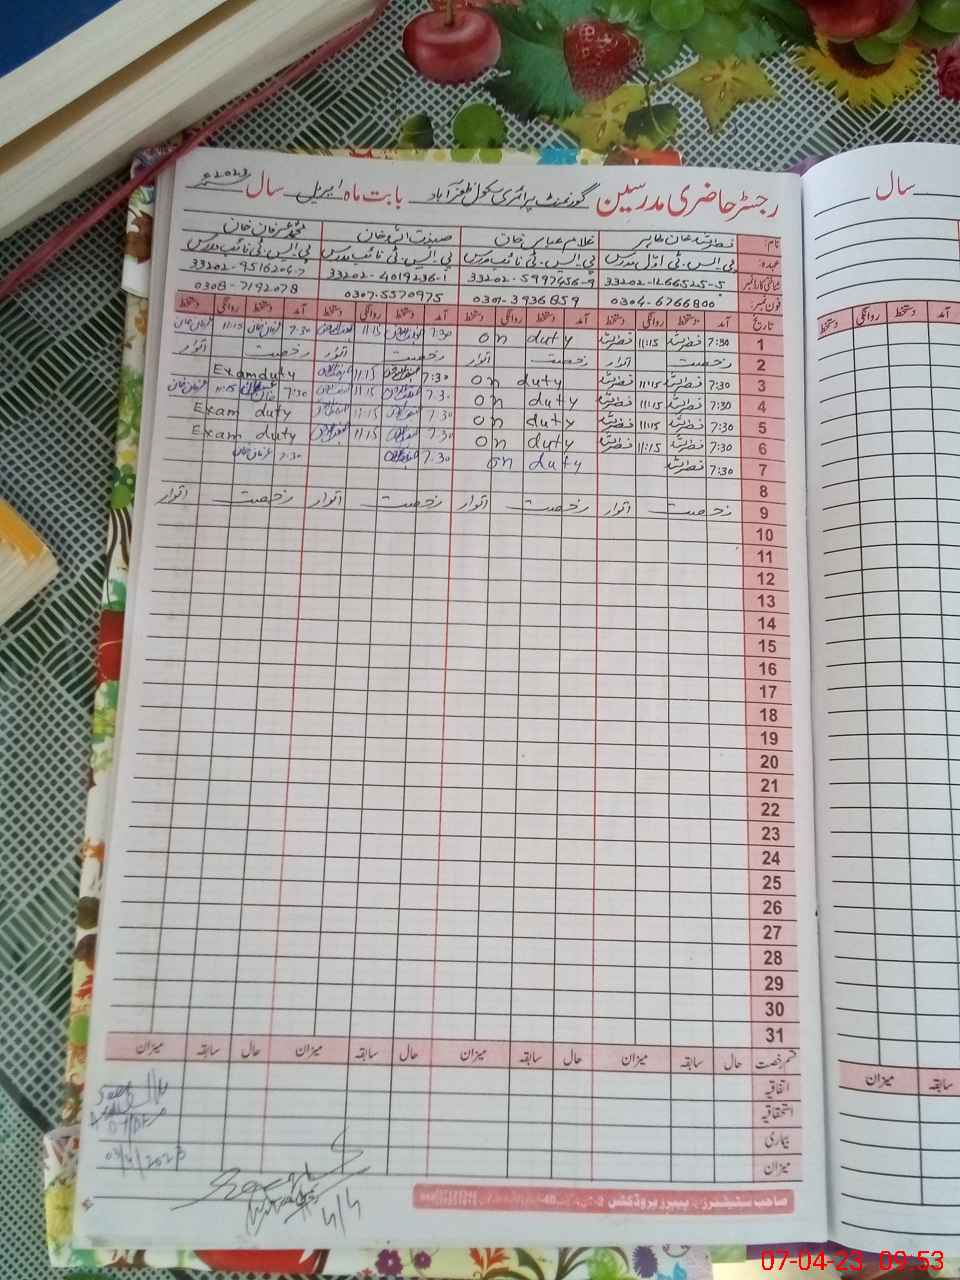 رجسٹر حاضری مدرسین گورنمنٹ پرائمری سکول ظفر آباد بابت ماہ اپریل سال 2023ء
سال
نام: خان طاہر غلام عباس خان صبغت اللہ خان محمد عرفان خان
عہدہ: پی۔ایس۔ٹی اوّل مدرس پی۔ایس۔ٹی نائب مدرس پی۔ایس۔ٹی نائب مدرس پی۔ایس۔ٹی نائب مدرس
شناختی کارڈ نمبر 33202-1266525-5 33202-5997456-9 33202-4019236-1 33202-9516204-7
فون نمبر: 0304-6766800 0301-3936859 0307-5570975 0308-7192078
تاریخ آمد دستخط روانگی دستخط آمد دستخط روانگی دستخط آمد دستخط روانگی دستخط آمد دستخط روانگی دستخط
آمد دستخط روانگی دستخط
1 7:30 11:15 on duty 7:30 11:15 7:30 عرفان خان 11:15 عرفان خان
2 رخصت اتوار رخصت اتوار رخصت اتوار رخصت اتوار
3 7:30 11:15 on duty 7:30 11:15 Exam duty
4 7:30 11:15 on duty 7:30 11:15 7:30 عرفان خان 11:15 عرفان خان
5 7:30 11:15 on duty 7:30 11:15 Exam duty
6 7:30 11:15 on duty 7:30 11:15 Exam duty
7 7:30 on duty 7:30 7:30 عرفان خان
8
9 رخصت اتوار رخصت اتوار رخصت اتوار رخصت اتوار
10
11
12
13
14
15
16
17
18
19
20
21
22
23
24
25
26
27
28
29
30
31
قسم رخصت حال سابقہ میزان حال سابقہ میزان حال سابقہ میزان حال سابقہ میزان
سابقہ میزان
اتفاقیہ
استحقاقیہ
بیماری
میزان
03/4/2023
4/4
صاحب سٹیشنرز، پیپرز پروڈکشن
07-04-23 09:53